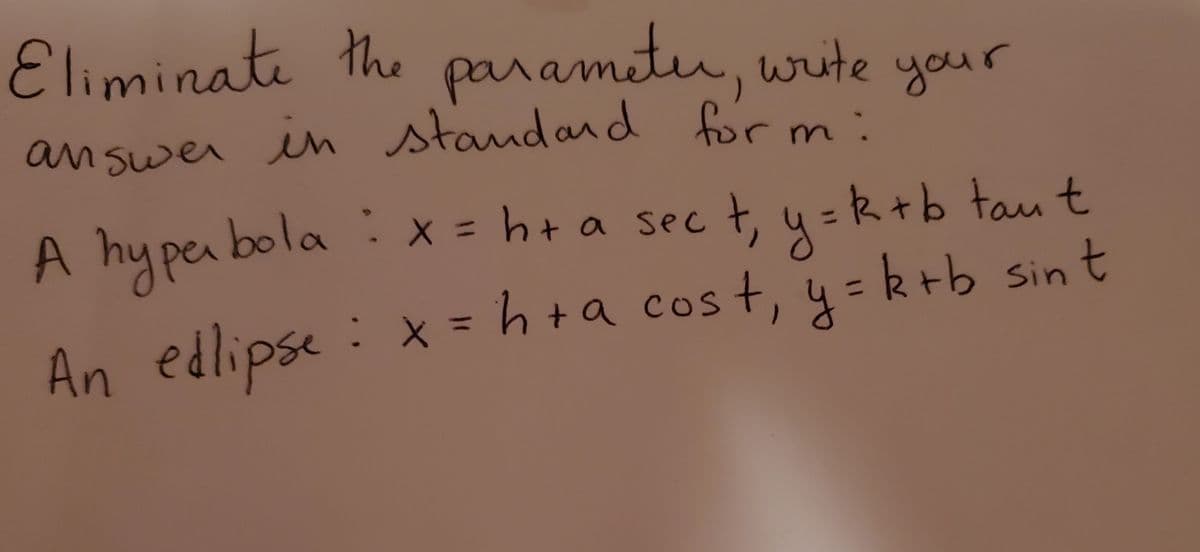 Eliminate the parameter, write your
answer in standard form:
A hyperbola : x = h + a sec t, y = k + b tan t
An edlipse : x = h + a cos t, y = k + b sin t